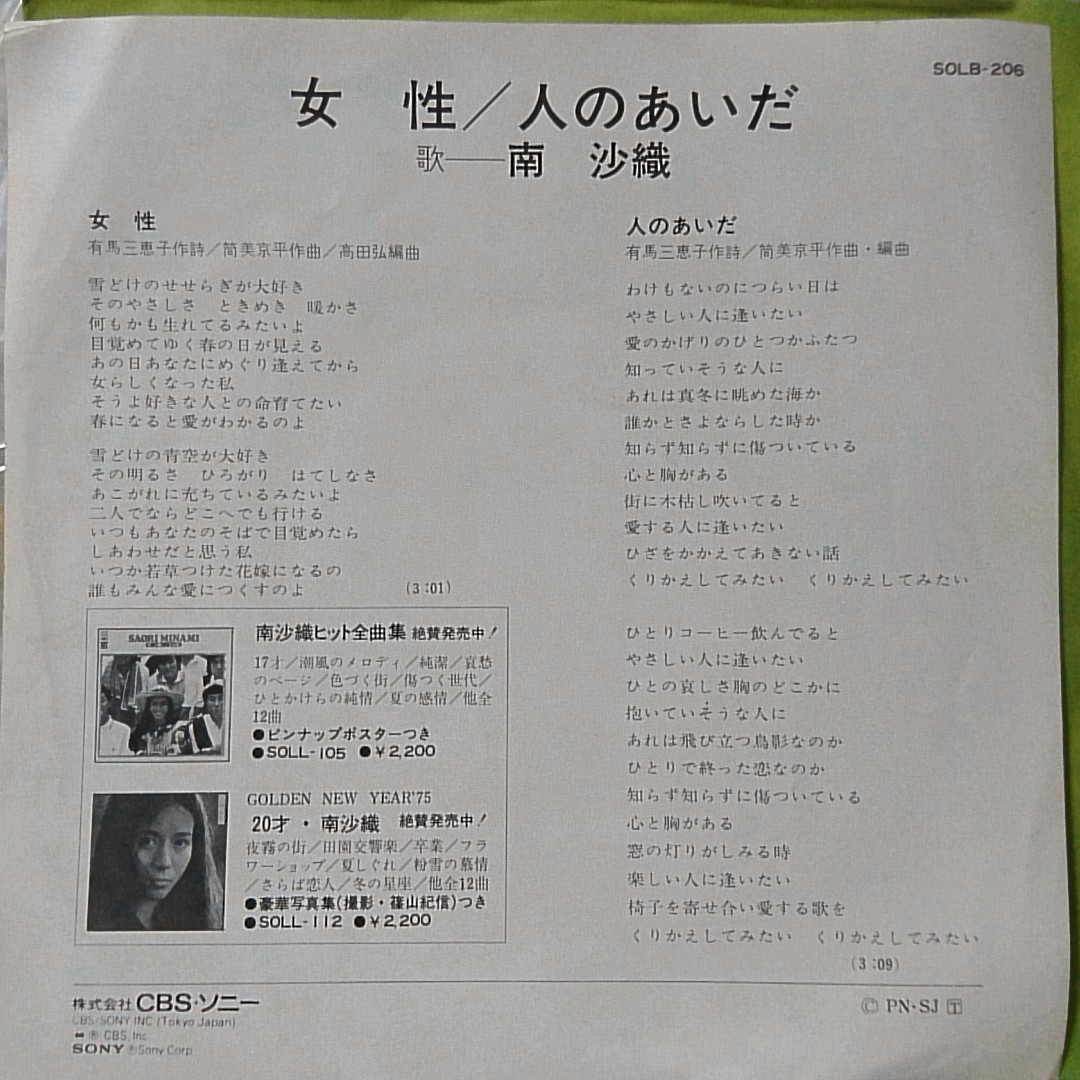 SOLB-206
女 性／人のあいだ
歌——南 沙織
女 性
有馬三恵子作詩／筒美京平作曲／高田弘編曲
雪どけのせせらぎが大好き
そのやさしさ ときめき 暖かさ
何もかも生れてるみたいよ
目覚めてゆく春の日が見える
あの日あなたにめぐり逢えてから
女らしくなった私
そうよ好きな人との命育てたい
春になると愛がわかるのよ
雪どけの青空が大好き
その明るさ ひろがり はてしなさ
あこがれに充ちているみたいよ
二人でならどこへでも行ける
いつもあなたのそばで目覚めたら
しあわせだと思う私
いつか若草つけた花嫁になるの
誰もみんな愛につくすのよ (3:01)
人のあいだ
有馬三恵子作詩／筒美京平作曲・編曲
わけもないのにつらい日は
やさしい人に逢いたい
愛のかげりのひとつかふたつ
知っていそうな人に
あれは真冬に眺めた海か
誰かとさよならした時か
知らず知らずに傷ついている
心と胸がある
街に木枯し吹いてると
愛する人に逢いたい
ひざをかかえてあきない話
くりかえしてみたい くりかえしてみたい
ひとりコーヒー飲んでると
やさしい人に逢いたい
ひとの哀しさ胸のどこかに
抱いていそうな人に
あれは飛び立つ鳥影なのか
ひとりで終った恋なのか
知らず知らずに傷ついている
心と胸がある
窓の灯りがしみる時
楽しい人に逢いたい
椅子を寄せ合い愛する歌を
くりかえしてみたい くりかえしてみたい
(3:09)
SAORI MINAMI
南沙織ヒット全曲集 絶賛発売中！
17才／潮風のメロディ／純潔／哀愁
のページ／色づく街／傷つく世代／
ひとかけらの純情／夏の感情／他全
12曲
●ピンナップポスターつき
●SOLL-105 ●￥2,200
GOLDEN NEW YEAR'75
20才・南沙織 絶賛発売中！
夜霧の街／田園交響楽／卒業／フラ
ワーショップ／夏しぐれ／粉雪の慕情
／さらば恋人／冬の星座／他全12曲
●豪華写真集(撮影・篠山紀信)つき
●SOLL-112 ●￥2,200
株式会社 CBS・ソニー
CBS/SONY INC. (Tokyo Japan)
Ⓟ CBS, Inc.
SONY ⓇSony Corp.
Ⓒ PN・SJ 🅃